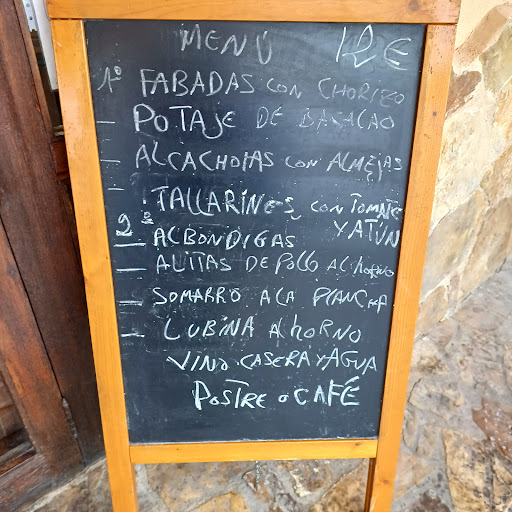 MENÚ 12€
1º FABADAS CON CHORIZO
— POTAJE DE BACALAO
— ALCACHOFAS CON ALMEJAS
— TALLARINES CON TOMATE
Y ATÚN
2º ALBONDIGAS
— ALITAS DE POLLO AL HORNO
— SOMARRO A LA PLANCHA
— LUBINA AL HORNO
VINO CASERA Y AGUA
POSTRE O CAFÉ